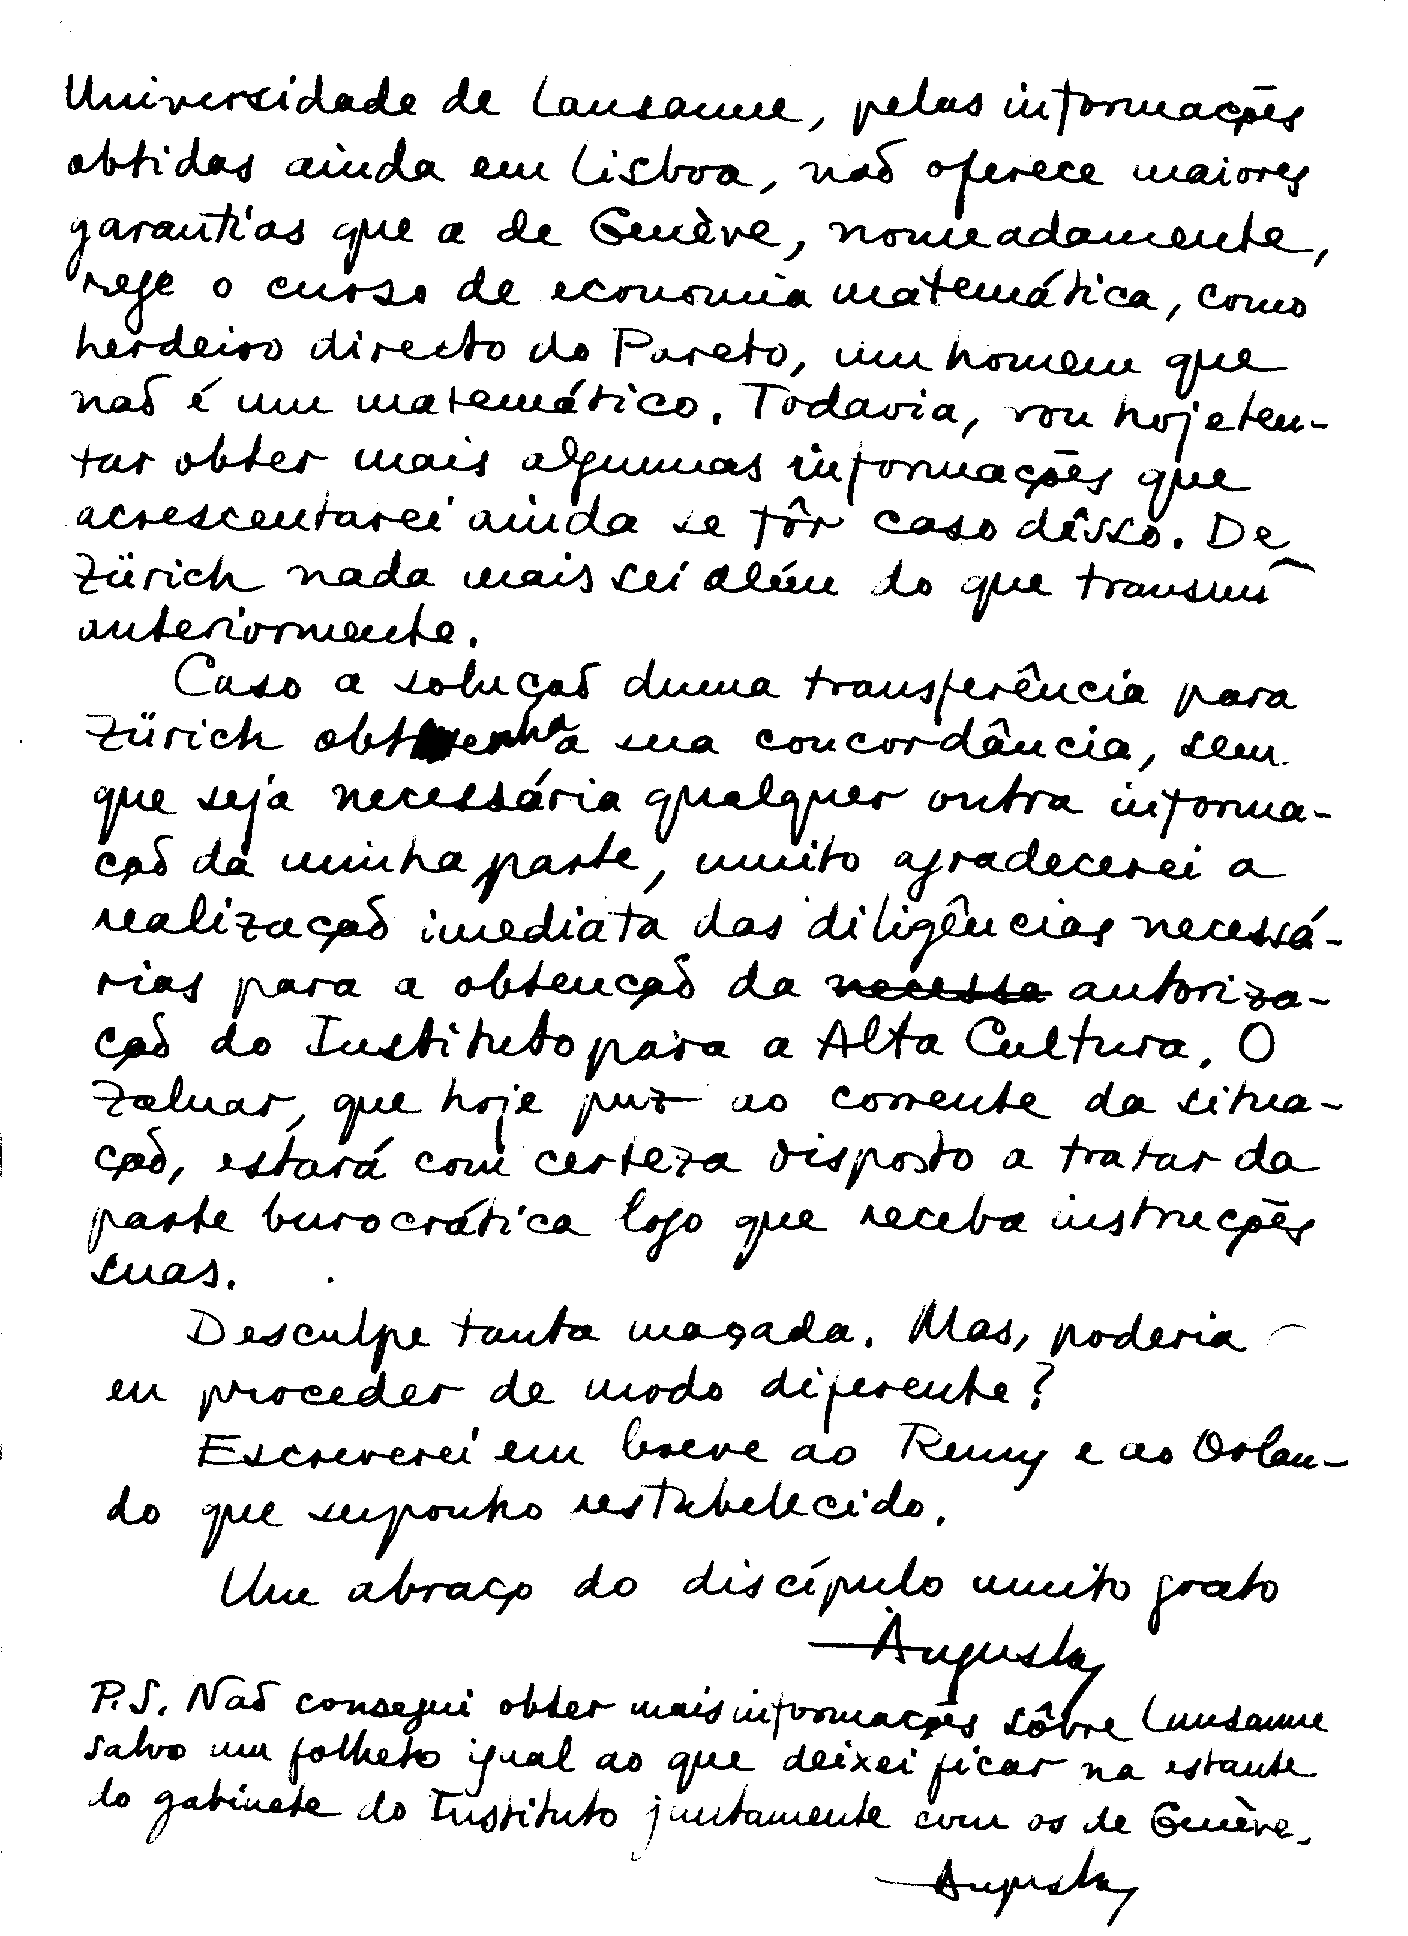 Universidade de Lausanne, pelas informações
obtidas ainda em Lisboa, não oferece maiores
garantias que a de Genève, nomeadamente,
rege o curso de economia matemática, como
herdeiro directo do Pareto, um homem que
não é um matemático. Todavia, vou hoje ten-
tar obter mais algumas informações que
acrescentarei ainda se fôr caso dêsso. De
Zürich nada mais sei além do que transmi
anteriormente.
Caso a solução duma transferência para
Zürich obtenha a sua concordância, sem
que seja necessária qualquer outra informa-
ção da minha parte, muito agradecerei a
realização imediata das diligências necessá-
rias para a obtenção da necessa autoriza-
ção do Instituto para a Alta Cultura. O
Zaluar, que hoje puz ao corrente da situa-
ção, estará com certeza disposto a tratar da
parte burocrática logo que receba instruções
suas.
Desculpe tanta maçada. Mas, poderia
eu proceder de modo diferente?
Escreverei em breve ao Remy e ao Orlan-
do que suponho restabelecido.
Um abraço do discípulo muito grato
Augusto
P.S. Não consegui obter mais informações sôbre Lausanne
salvo um folheto igual ao que deixei ficar na estante
do gabinete do Instituto juntamente com os de Genève.
Augusto